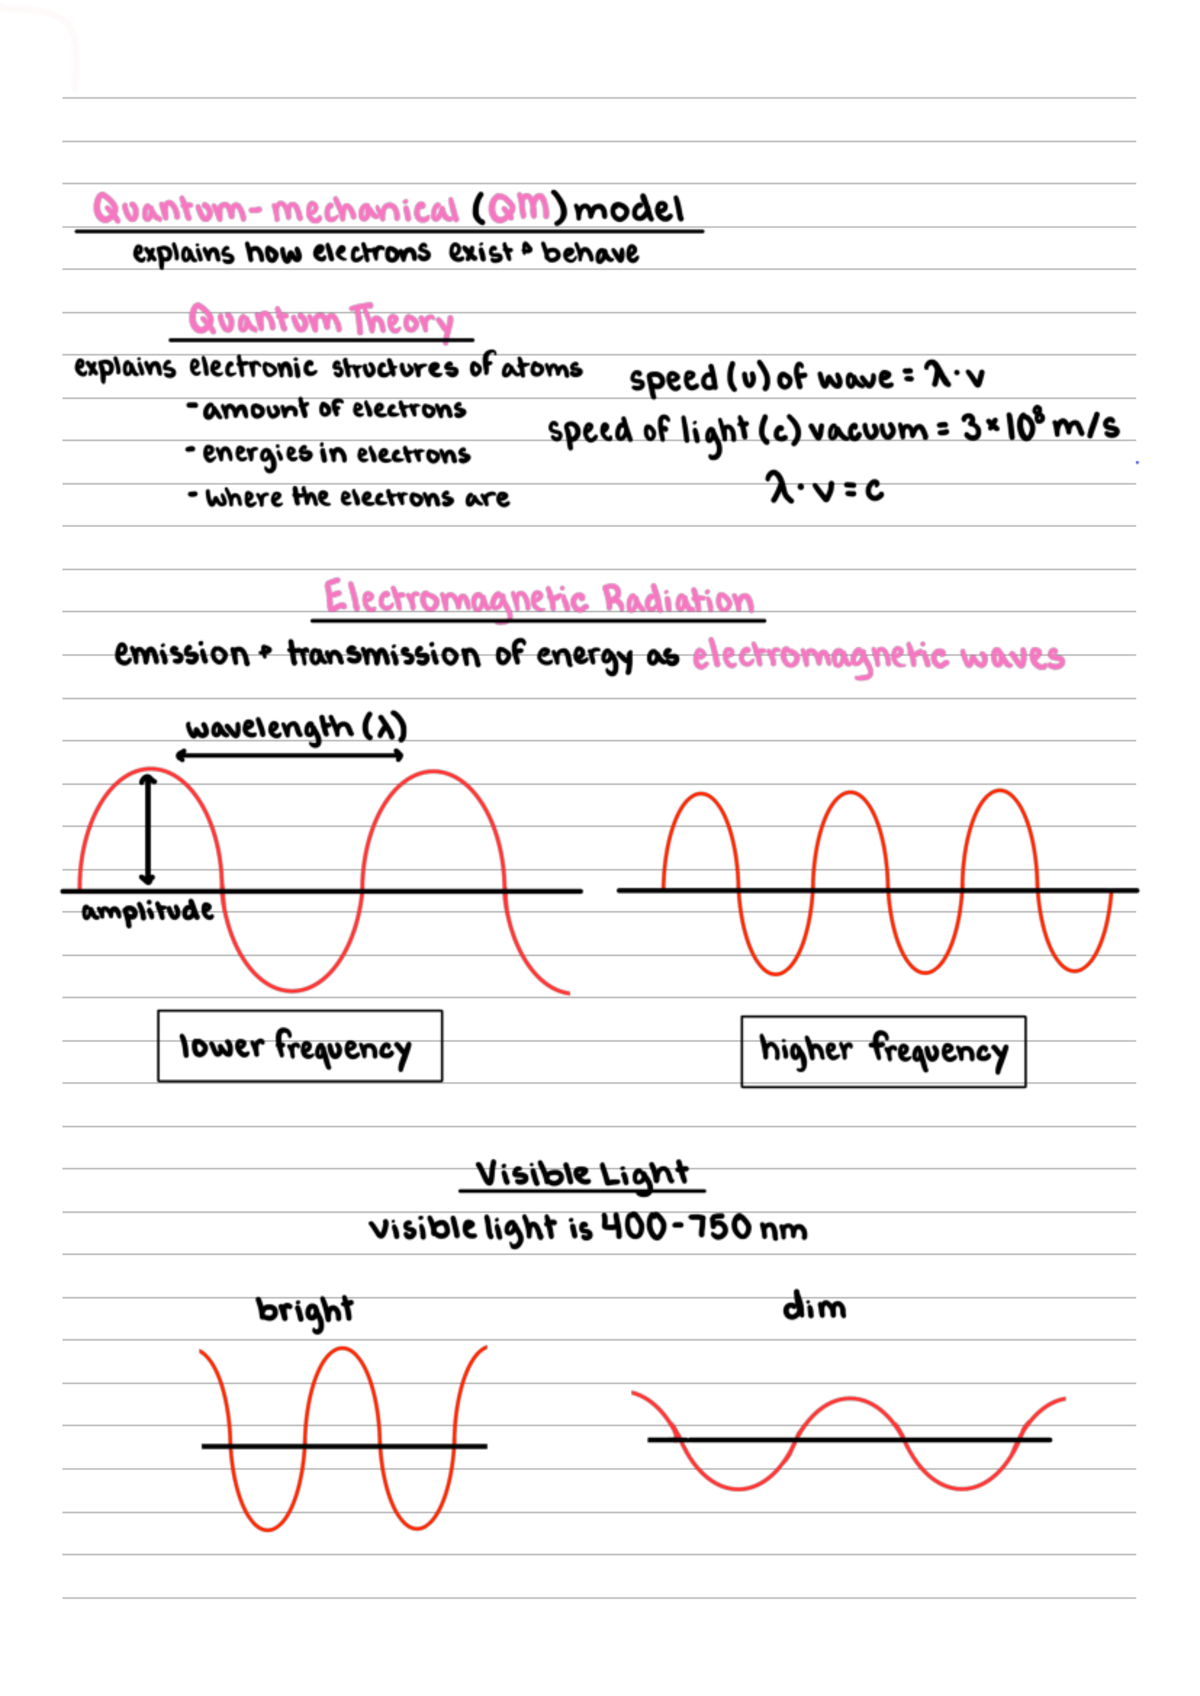 Quantum-mechanical (QM) model
explains how electrons exist & behave
Quantum Theory
explains electronic structures of atoms
- amount of electrons
- energies in electrons
- where the electrons are
speed (υ) of wave = λ · ν
speed of light (c) vacuum = 3 × 10⁸ m/s
λ · ν = c
Electromagnetic Radiation
emission & transmission of energy as electromagnetic waves
wavelength (λ)
amplitude
lower frequency
higher frequency
Visible Light
visible light is 400-750 nm
bright
dim